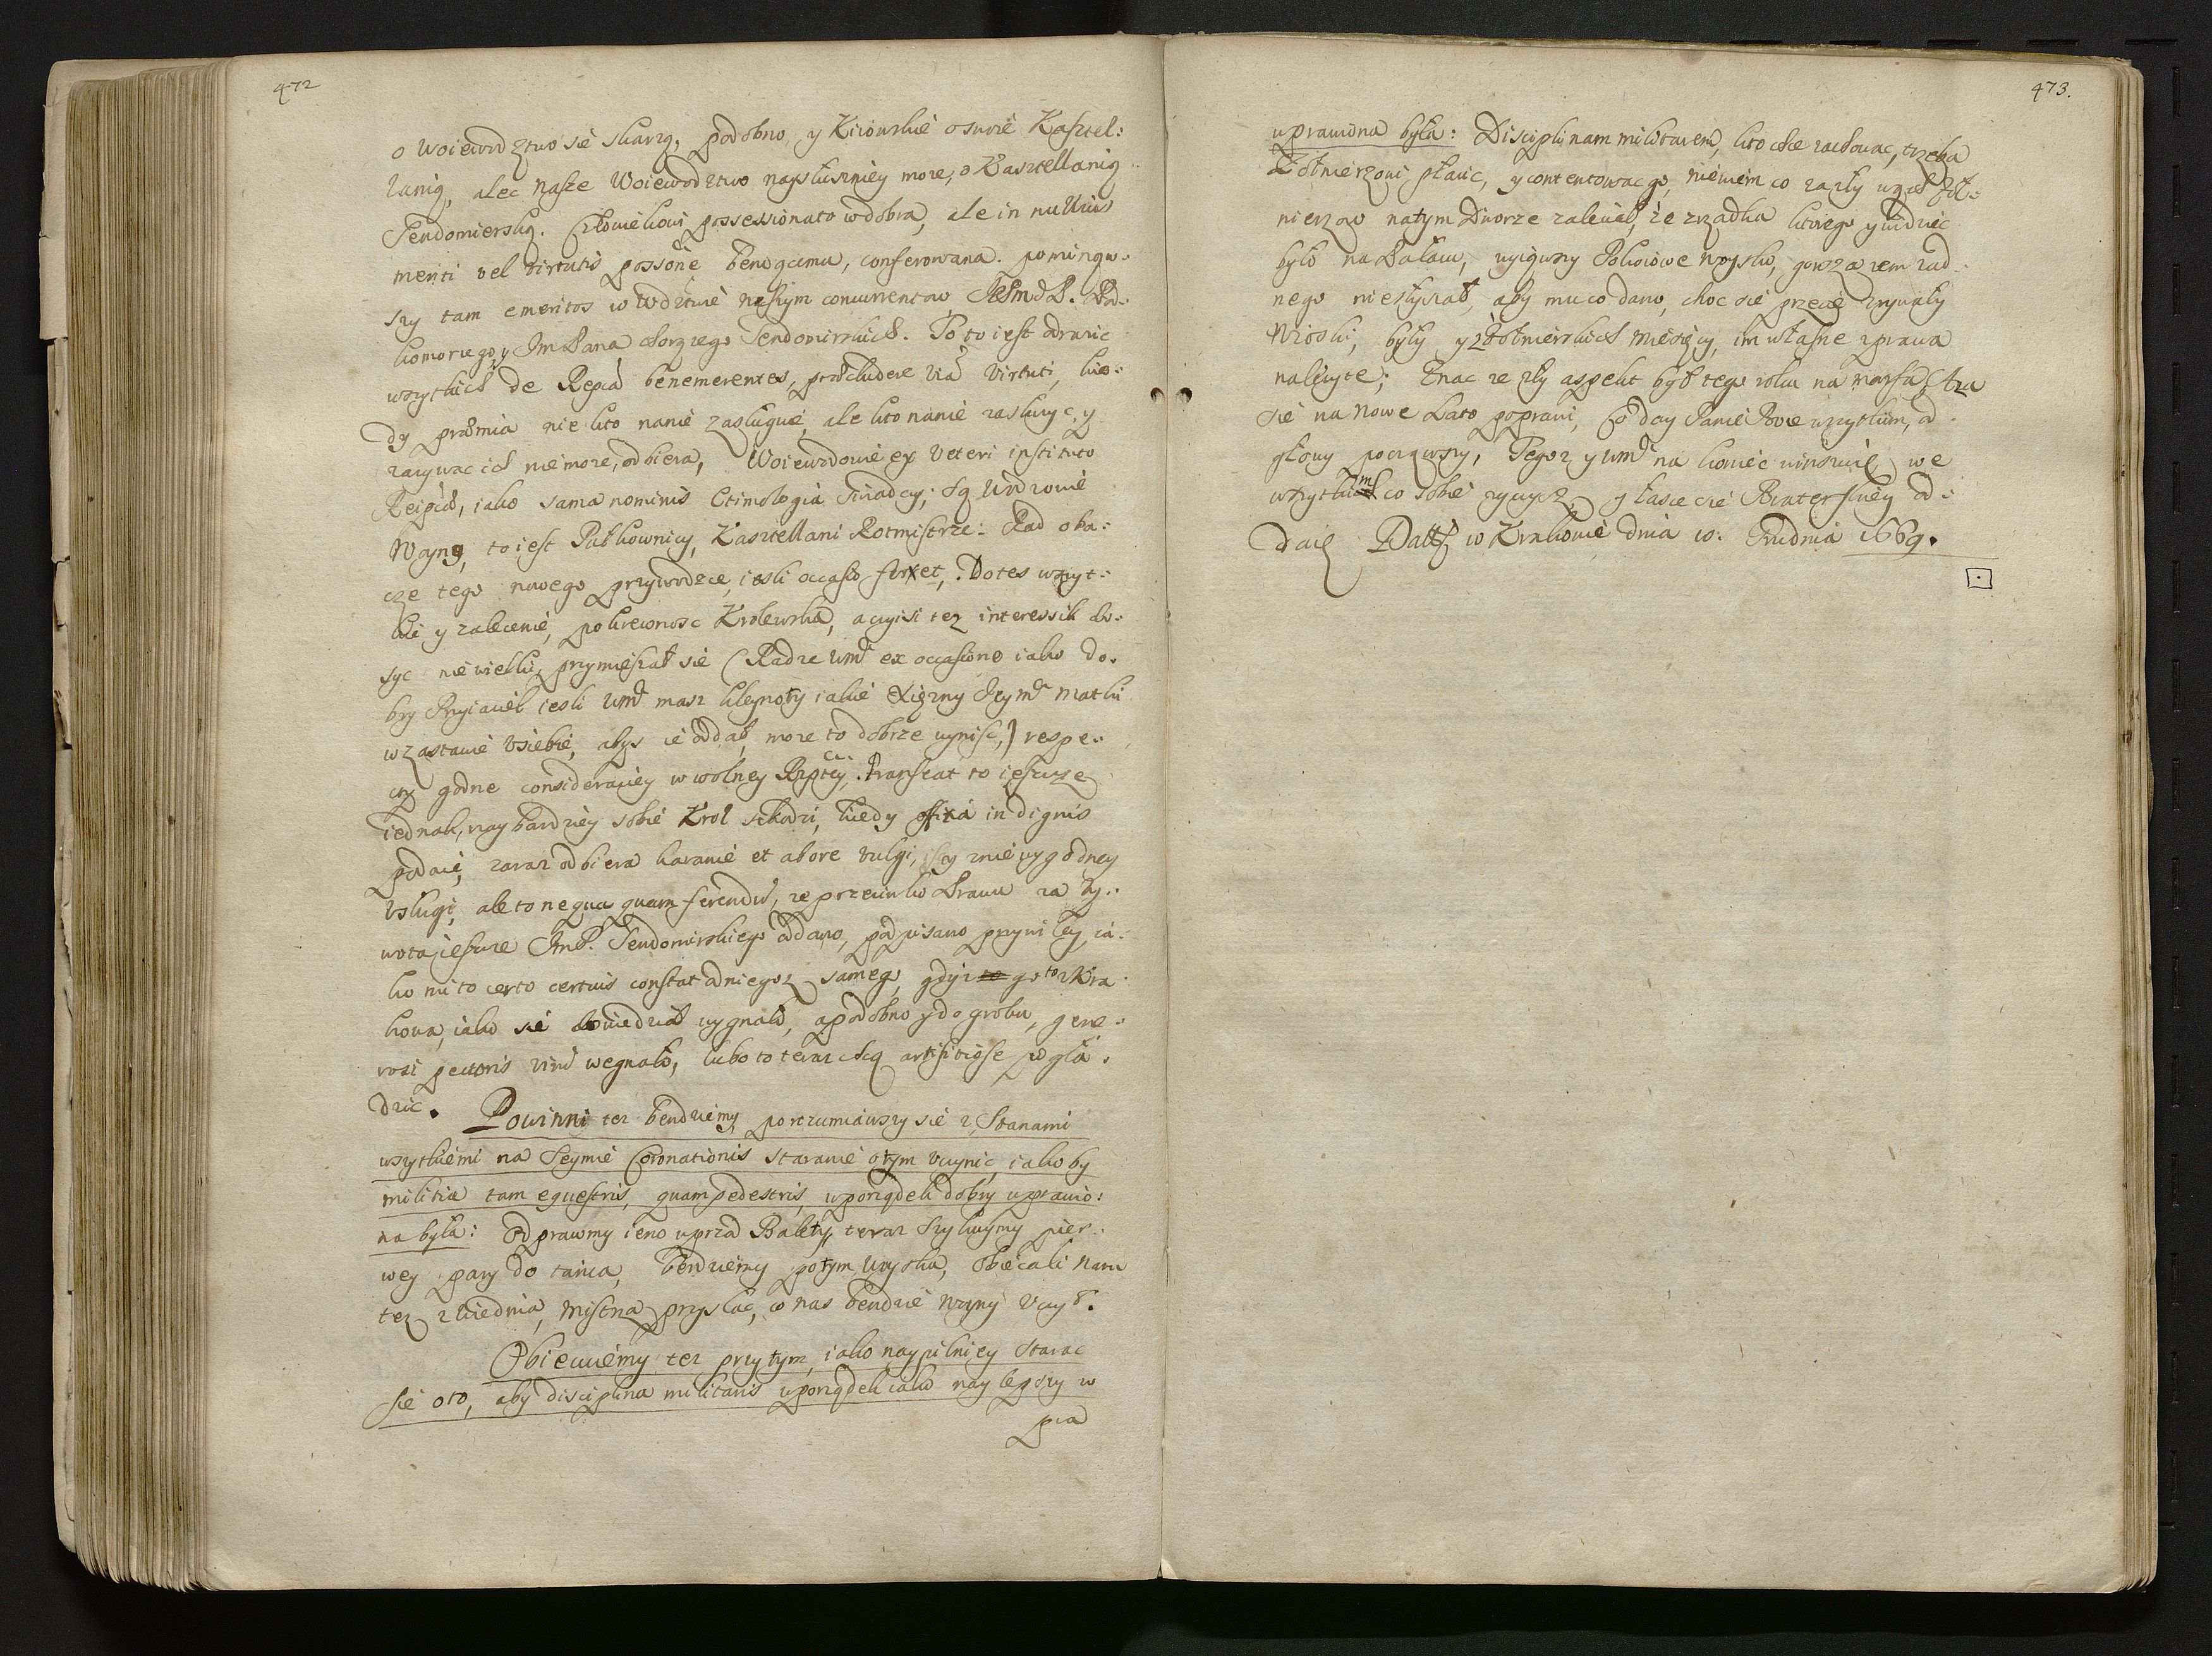 472
o Woiewodztwo sie skarzą, podobno y Kiiowskie osuvie Kasztel:
lanią, alec nasze Woiewodztwo naysluszniey moze, o Kasztellanią
Sendomierską. Człowiekowi possessionato w dobra, ale in nullius
meriti vel virtutis possone bendącemu, conferowana. pominąw:
szy tam emeritos w Wdztwie naszym concurrentow JchMci P. Pod:
komorzego, y Jm Pana chorązego Sendomirskich. To to iest odrazic
wszytkich de Repca benemerentes, præcludere via virtuti, kie:
dy præmia nie kto nanie zasługuie, ale kto nanie zasłuzyc, y
zazywac ich nie moze, odbiera, Woiewodowie ex veteri instituto
Reipca, iako sama nominis Etimologia swiadczy, są Wodzowie
Woyny, to iest Pułkownicy, Kasztellani Rotmistrze. Rad oba:
czę tego nowego przywodzcę, iesli occasio foret. Dotes wszyt:
kie y zalecenie, pokrewnosc Krolewska, a czyisi tez interessik do:
syc niewielki, przymieszał sie (Radzę Wmci ex occasione iako do:
bry Przyiaciel iesli Wmc masz kleynoty iakie Xięzny Jeymci Matki
w zastawie u siebie, abys ie oddał, moze to dobrze uynisc,) respe:
cty godne consideraciey w wolney Rzptey. Transeat to ieszcze
iednak, naybardziey sobie Krol szkodzi, kiedy officia indignis
podaie, zaraz odbiera karanie et ab ore vulgi, isty z niewygodney
usługi, ale to nequaquam ferendu, ze przeciwko Prawu za zy:
wota ieszcze JmP. Sendomirskiego oddano, podpisano przywiley, ia:
ko mi to certo certius constat od niegoz samego, gdyz go to z Kra:
kowa, iako sie dowiedział wygnało, a podobno y do grobu, gene:
rosi pectoris viru wegnało, lubo to teraz chcą artificiose pogła:
dzic. Powinni tez bendziemy porozumiawszy sie z Stanami
wszytkiemi na Seymie Coronationis staranie o tym uczynic, iako by
militia tam equestris, quam pedestris, w porządek dobry wprawio:
na była: Odprawmy ieno wprzod Balety, teraz Szykuymy pier:
wey pary do tańca, bendziemy potym Woysko, obiecali nam
tez z Wiednia, Mistrza przysłac, co nas bendzie Woyny uczył.
Obiecuiemy tez przy tym, iako naypilniey starac
sie o to, aby disciplina militaris w porządek iako naylepszy w
pra
473.
wprawiona była: Disciplinam militarem, kto chce zachowac, trzeba
Zołnierzowi płacic, y contentowac go, niewiem co za zły urząd Zoł:
nierzow na tym Dworze zaleciał, ze zrzadka ktorego y widziec
było na Pałacu, wyiąwszy Pokoiowe Woysko, gorsza zem zad:
nego niesłyszał, aby mu co dano, choc sie przecie zrywały
Wioski, były y z Zołnierskich Miesięcy, im własne z prawa
nalezyte; Znac ze zły aspekt był tego roku na Marsa, Aza
sie na Nowe Lato poprawi, Co day Panie Boze wszytkim, od
głowy począwszy, Tegoz y Wmci na koniec winszuię we
wszytkim co sobie zyczysz, y łasce cie Braterskiey od:
daię Datt w Krakowie dnia 10. Grudnia 1669.